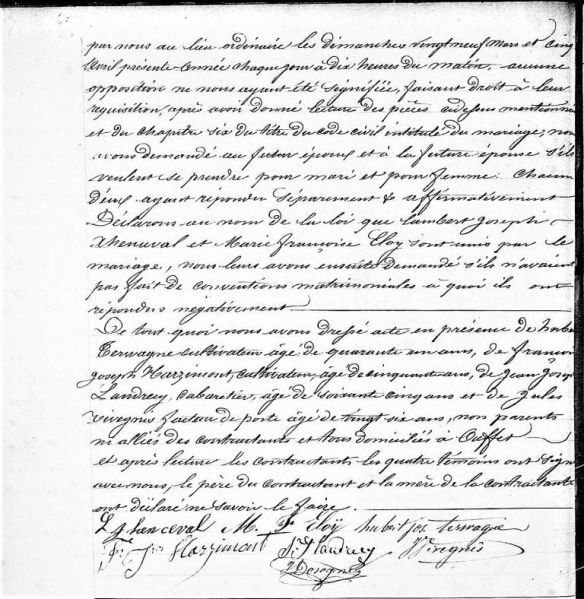 par nous au lieu ordinaire les dimanches vingt neuf Mars et cinq
Avril présente année chaque jour à dix heures du matin, aucune
opposition ne nous ayant été signifiée, faisant droit à leur
requisition, après avoir donné lecture des pièces cidessus mentionnées
et du chapitre six du titre du code civil intitulé du mariage, nous
avons demandé au futur époux et à la future épouse s'ils
veulent se prendre pour mari et pour femme. Chacun
d'eux ayant répondu séparement & affirmativement
Déclarons au nom de la loi que Lambert Joseph
Xhenceval et Marie Françoise Eloy sont unis par le
mariage, nous leurs avons ensuite demandé s'ils n'avaient
pas fait de conventions matrimoniales à quoi ils ont
répondus négativement
De tout quoi nous avons dressé acte en présence de hubert
Terwagne cultivateur âgé de quarante un ans, de françois
Joseph Harzimont, cultivateur, âgé de cinquante ans, de Jean Joseph
Landrecy, cabaretier, âgé de soixante cinq ans et de Jules
Viregnis facteur de poste âgé de vingt six ans, non parents
ni alliés des contractants et tous domiciliés à Ouffet
et après lecture les contractants les quatre témoins ont signé
avec nous, le père du contractant et la mère de la contractante
ont déclaré ne savoir le faire.
L J Xhenceval M. f. Eloy hubert jos terwagne
Fs Jh Harzimont J. J. Landrecy J Viregnis